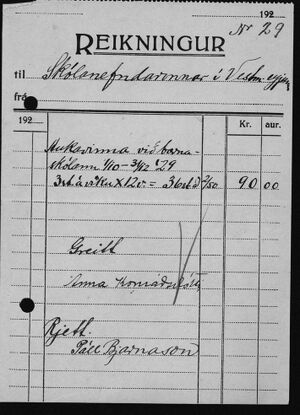 192
No 29
REIKNINGUR
til Skólanefndarinnar í Vestm.eyjum
frá
192 Kr. aur.
Aukavinna við barna-
skólann 1/10 - 3/12 '29
3 st. á viku x 12 v. = 36 st. á 2/50 90 00
Greitt
Anna Konráðsdóttir
Rjett.
Páll Bjarnason